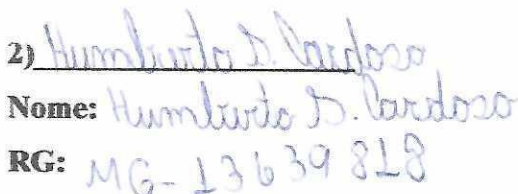 2) Humberto S. Cardoso
Nome: Humberto S. Cardoso
RG: MG-13639818